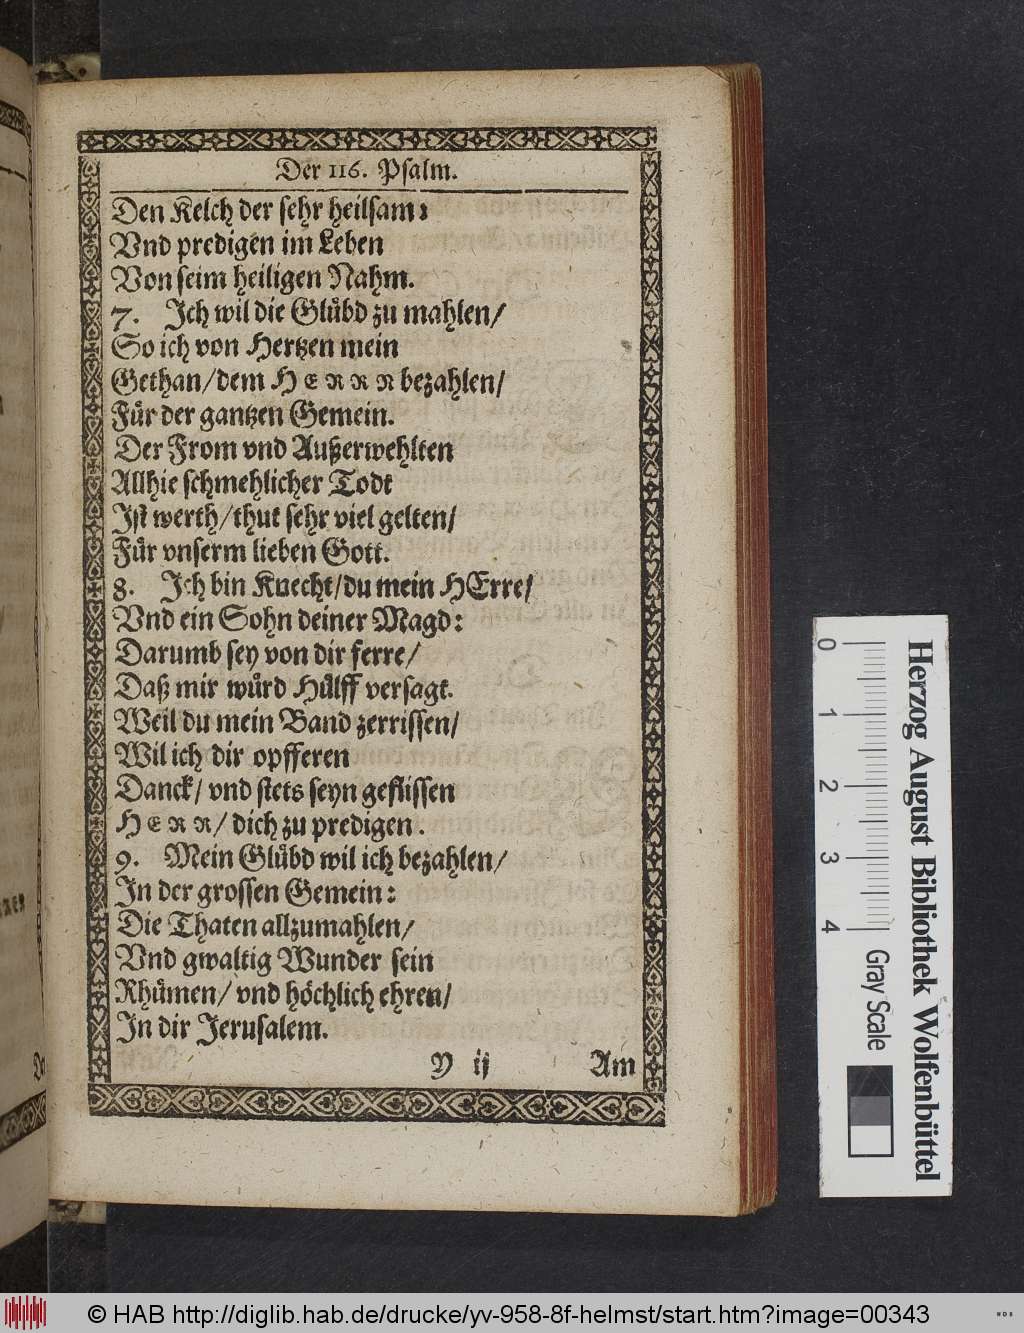 Der 116. Psalm.
Den Kelch der sehr heilsam:
Vnd predigen im Leben
Von seim heiligen Nahm.
7. Ich wil die Glübd zu mahlen/
So ich von Hertzen mein
Gethan/dem HERRN bezahlen/
Für der gantzen Gemein.
Der From vnd Außerwehlten
Allhie schmehlicher Todt
Ist werth/thut sehr viel gelten/
Für vnserm lieben Gott.
8. Ich bin Knecht/du mein HErre/
Vnd ein Sohn deiner Magd:
Darumb sey von dir ferre/
Daß mir würd Hülff versagt.
Weil du mein Band zerrissen/
Wil ich dir opfferen
Danck/ vnd stets seyn geflissen
HERR/ dich zu predigen.
9. Mein Glübd wil ich bezahlen/
In der grossen Gemein:
Die Thaten allzumahlen/
Vnd gwaltig Wunder sein
Rhümen/ vnd höchlich ehren/
In dir Jerusalem.
Y ij Am
Herzog August Bibliothek Wolfenbüttel
0 1 2 3 4
Gray Scale
© HAB http://diglib.hab.de/drucke/yv-958-8f-helmst/start.htm?image=00343